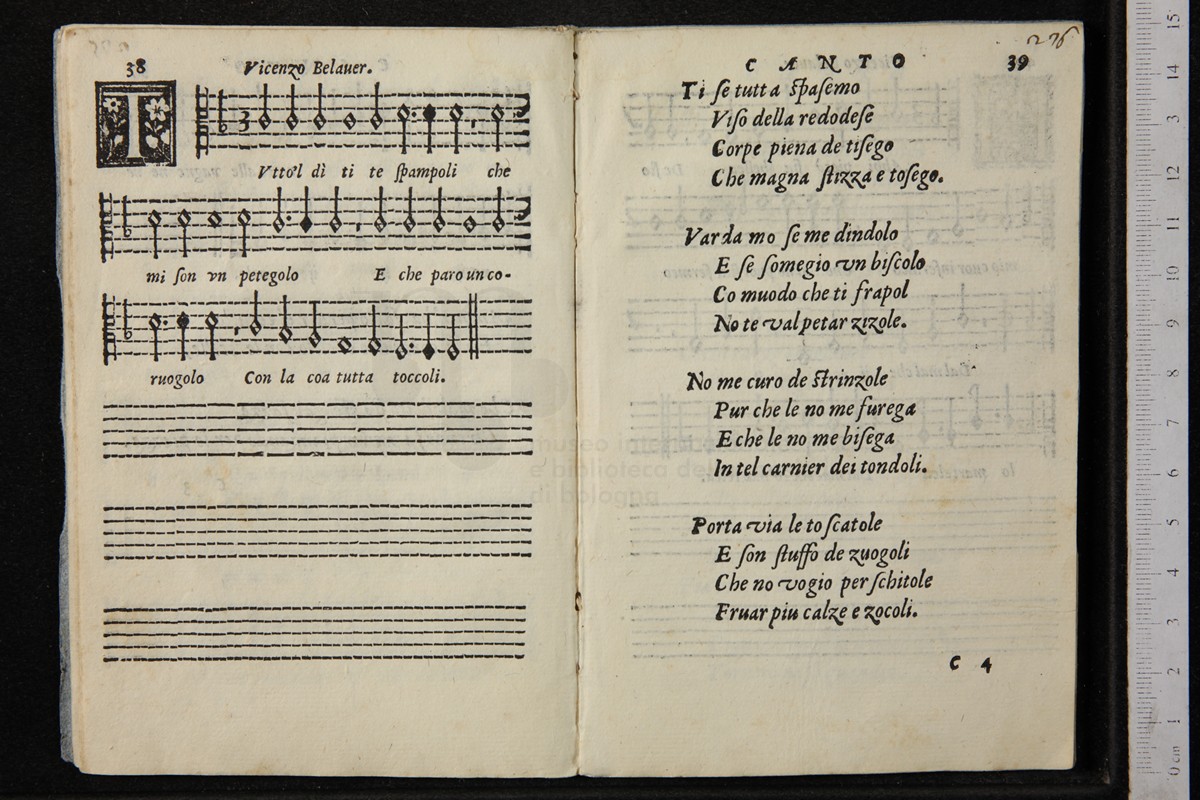 38
Vicenzo Belauer.
TVtto'l dì ti te ſpampoli che
mi ſon vn petegolo E che paro un co-
ruogolo Con la coa tutta toccoli.
museo inter
e biblioteca de
di bologna
276
CANTO
39
Ti ſe tutta ſpaſemo
Viſo della redodeſe
Corpe piena de tiſego
Che magna ſtizza e toſego.
Varda mo ſe me dindolo
E ſe ſomegio vn biſcolo
Co muodo che ti frapol
No te val petar zizole.
No me curo de ſtrinzole
Pur che le no me furega
E che le no me biſega
In tel carnier dei tondoli.
Porta via le to ſcatole
E ſon ſtuffo de zuogoli
Che no vogio per ſchitole
Fruar piu calze e zocoli.
C 4
15
14
13
12
11
10
9
8
7
6
5
4
3
2
1
0 cm